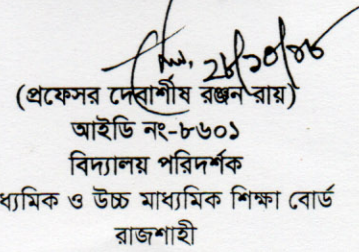 ২৮/১০/১৮
(প্রফেসর দেবাশীষ রঞ্জন রায়)
আইডি নং-৮৬০১
বিদ্যালয় পরিদর্শক
ধ্যমিক ও উচ্চ মাধ্যমিক শিক্ষা বোর্ড
রাজশাহী